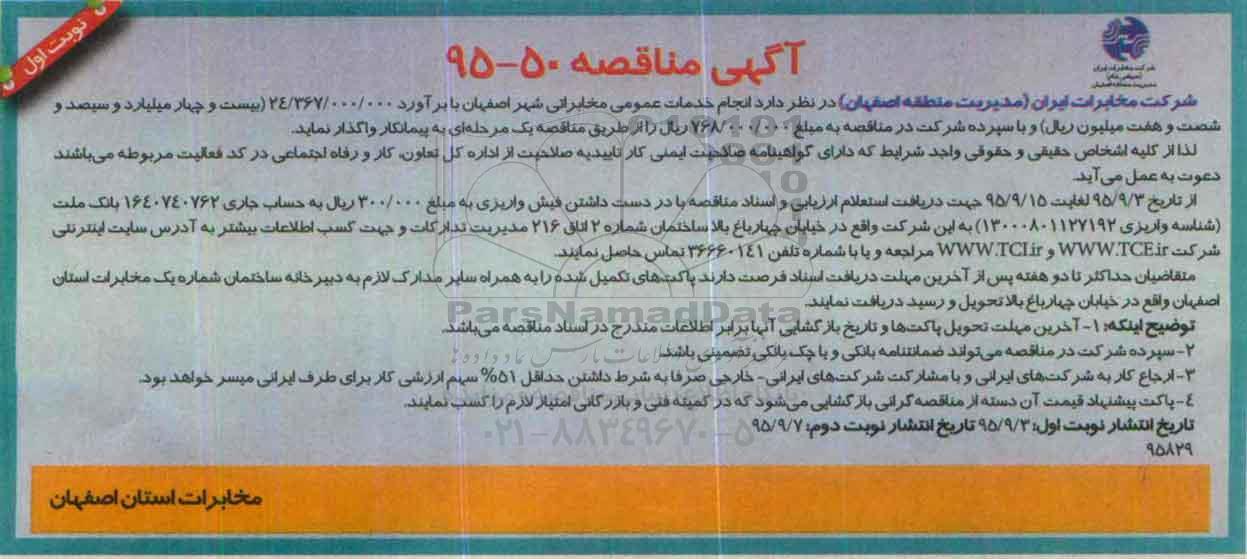 نوبت اول
شرکت مخابرات ایران
(سهامی عام)
مدیریت منطقه اصفهان
آگهی مناقصه ۵۰-۹۵
شرکت مخابرات ایران (مدیریت منطقه اصفهان) در نظر دارد انجام خدمات عمومی مخابراتی شهر اصفهان با برآورد ۲۴/۳۶۷/۰۰۰/۰۰۰ (بیست و چهار میلیارد و سیصد و
شصت و هفت میلیون ریال) و با سپرده شرکت در مناقصه به مبلغ ۷۶۸/۰۰۰/۰۰۰ ریال را از طریق مناقصه یک مرحله‌ای به پیمانکار واگذار نماید.
لذا از کلیه اشخاص حقیقی و حقوقی واجد شرایط که دارای گواهینامه صلاحیت ایمنی کار تاییدیه صلاحیت از اداره کل تعاون، کار و رفاه اجتماعی در کد فعالیت مربوطه می‌باشند
دعوت به عمل می‌آید.
از تاریخ ۹۵/۹/۳ لغایت ۹۵/۹/۱۵ جهت دریافت استعلام ارزیابی و اسناد مناقصه با در دست داشتن فیش واریزی به مبلغ ۳۰۰/۰۰۰ ریال به حساب جاری ۱۶۴۰۷۴۰۷۶۲ بانک ملت
(شناسه واریزی ۱۳۰۰۰۸۰۱۱۲۷۱۹۲) به این شرکت واقع در خیابان چهارباغ بالا ساختمان شماره ۲ اتاق ۲۱۶ مدیریت تدارکات و جهت کسب اطلاعات بیشتر به آدرس سایت اینترنتی
شرکت WWW.TCE.ir و WWW.TCI.ir مراجعه و یا با شماره تلفن ۳۶۶۶۰۱۴۱ تماس حاصل نمایند.
متقاضیان حداکثر تا دو هفته پس از آخرین مهلت دریافت اسناد فرصت دارند پاکت‌های تکمیل شده را به همراه سایر مدارک لازم به دبیرخانه ساختمان شماره یک مخابرات استان
اصفهان واقع در خیابان چهارباغ بالا تحویل و رسید دریافت نمایند.
توضیح اینکه: ۱- آخرین مهلت تحویل پاکت‌ها و تاریخ بازگشایی آنها برابر اطلاعات مندرج در اسناد مناقصه می‌باشد.
۲- سپرده شرکت در مناقصه می‌تواند ضمانتنامه بانکی و یا چک بانکی تضمینی باشد.
۳- ارجاع کار به شرکت‌های ایرانی و با مشارکت شرکت‌های ایرانی- خارجی صرفا به شرط داشتن حداقل ۵۱% سهم ارزشی کار برای طرف ایرانی میسر خواهد بود.
۴- پاکت پیشنهاد قیمت آن دسته از مناقصه‌گرانی بازگشایی می‌شود که در کمیته فنی و بازرگانی امتیاز لازم را کسب نمایند.
تاریخ انتشار نوبت اول: ۹۵/۹/۳ تاریخ انتشار نوبت دوم: ۹۵/۹/۷
۹۵۸۲۹
مخابرات استان اصفهان
ParsNamadData
۰۲۱-۸۸۳۴۹۶۷۰-۵